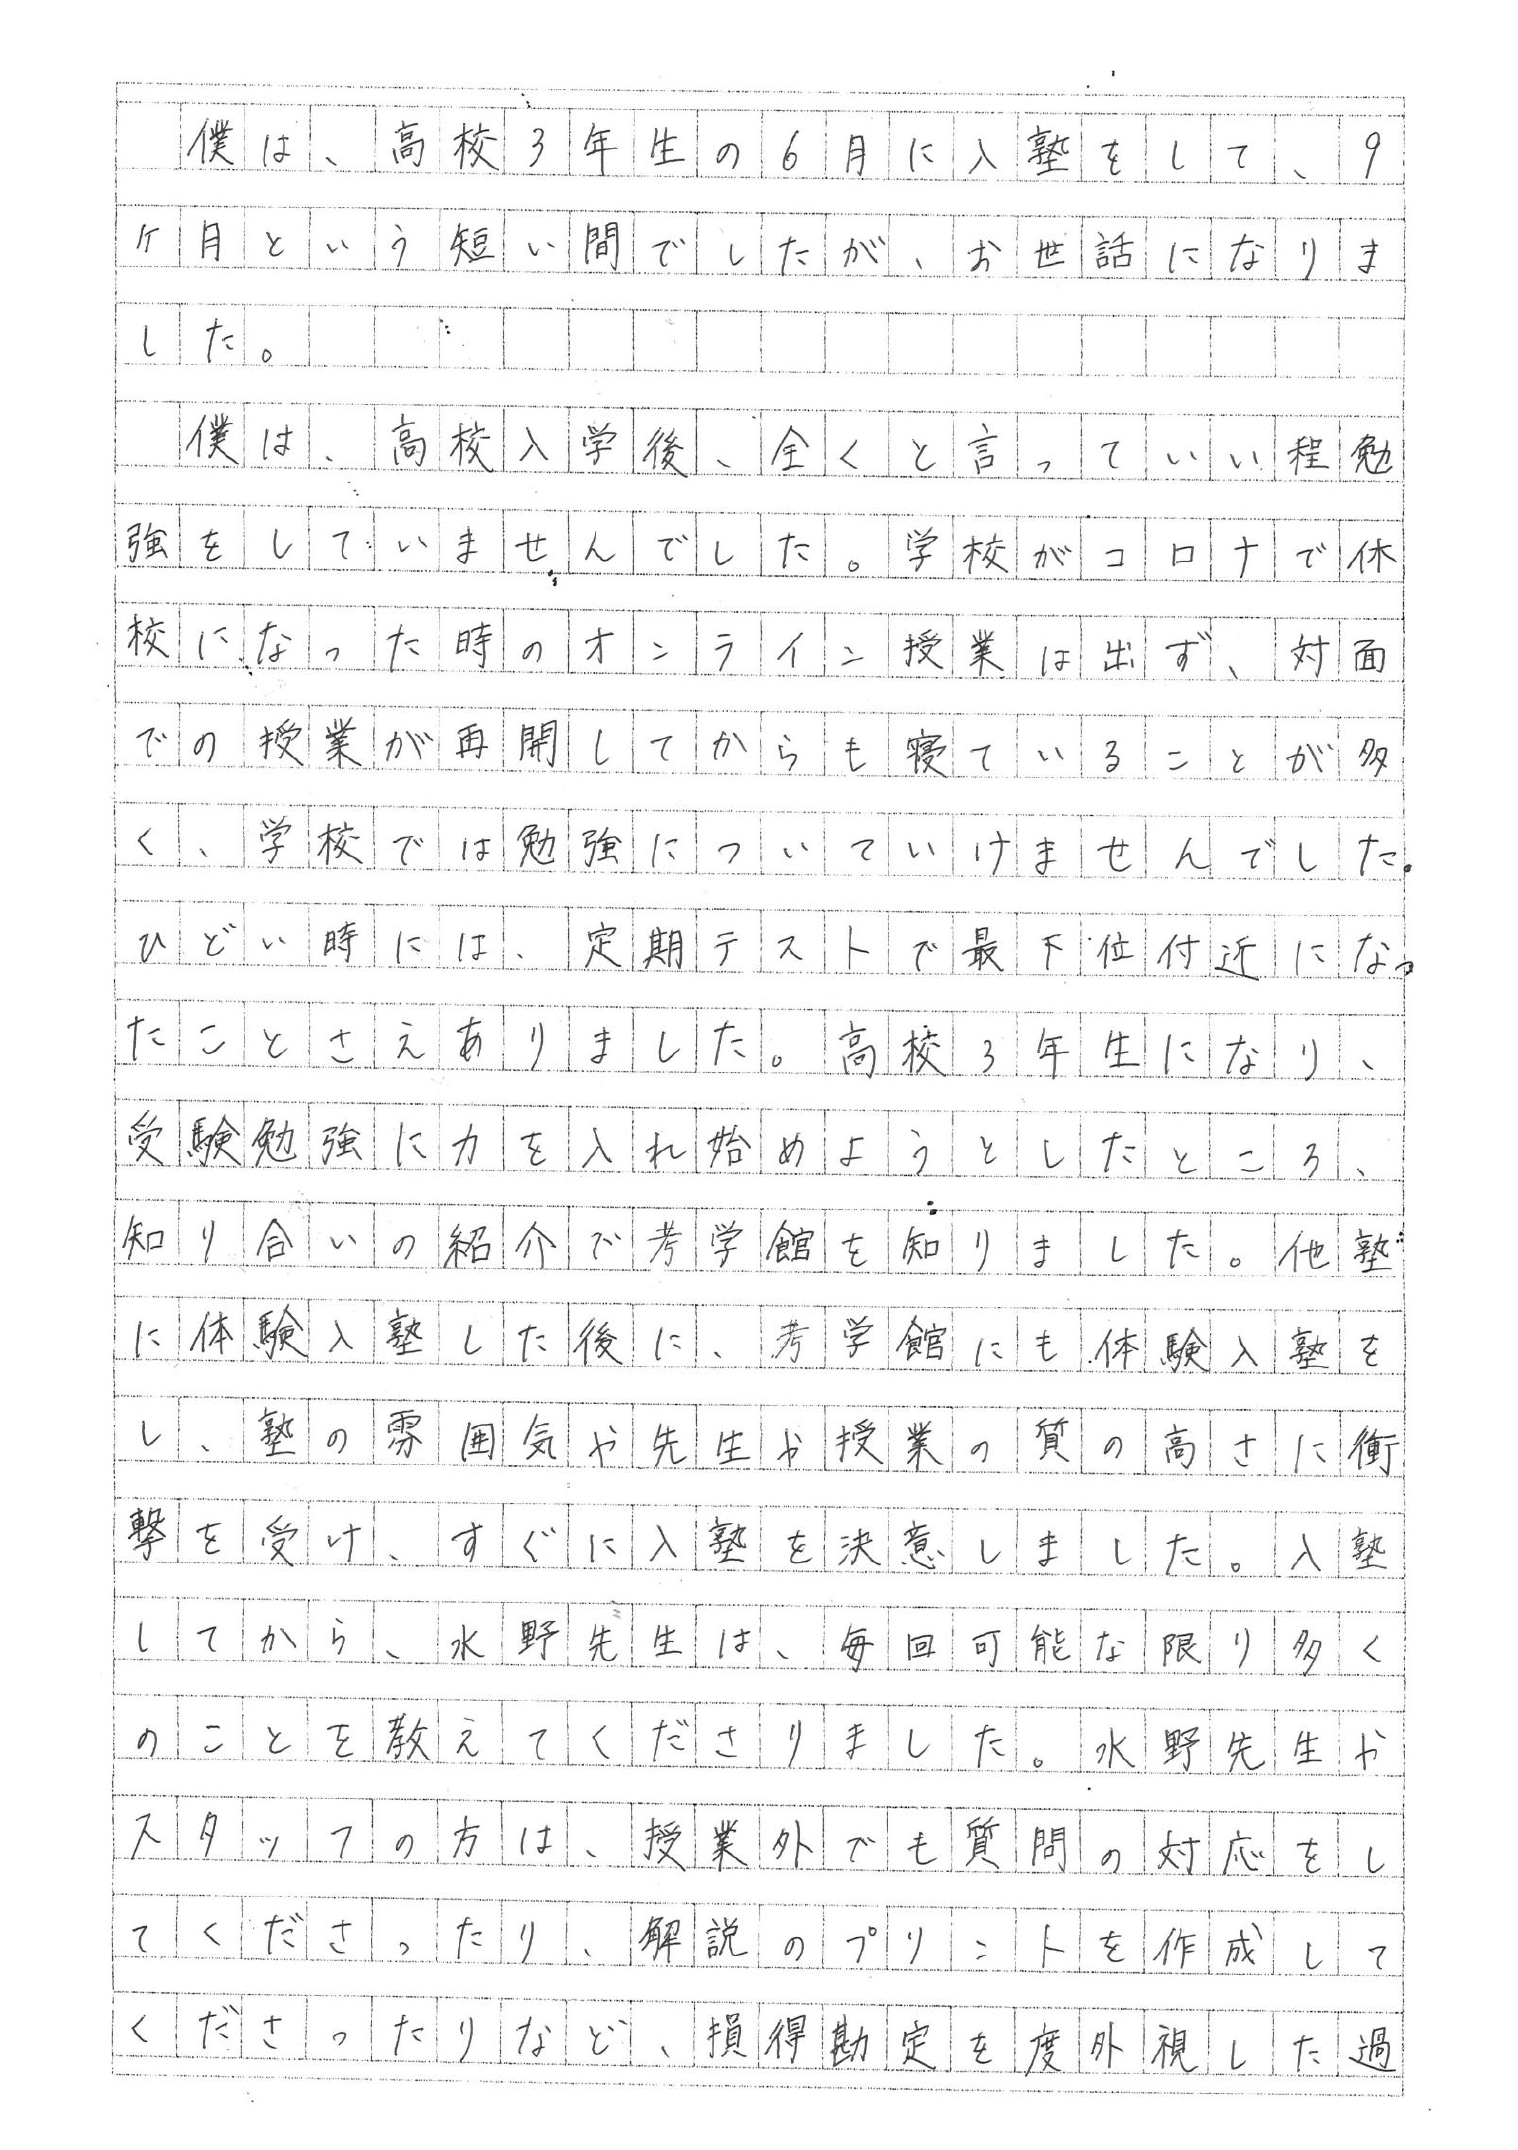 僕は、高校3年生の6月に入塾をして、9
ケ月という短い間でしたが、お世話になりま
した。
　僕は、高校入学後、全くと言っていい程勉
強をしていませんでした。学校がコロナで休
校になった時のオンライン授業は出ず、対面
での授業が再開してからも寝ていることが多
く、学校では勉強についていけませんでした。
ひどい時には、定期テストで最下位付近になっ
たことさえありました。高校3年生になり、
受験勉強に力を入れ始めようとしたところ、
知り合いの紹介で考学館を知りました。他塾
に体験入塾した後に、考学館にも体験入塾を
し、塾の雰囲気や先生や授業の質の高さに衝
撃を受け、すぐに入塾を決意しました。入塾
してから、水野先生は、毎回可能な限り多く
のことを教えてくださりました。水野先生や
スタッフの方は、授業外でも質問の対応をし
てくださったり、解説のプリントを作成して
くださったりなど、損得勘定を度外視した過